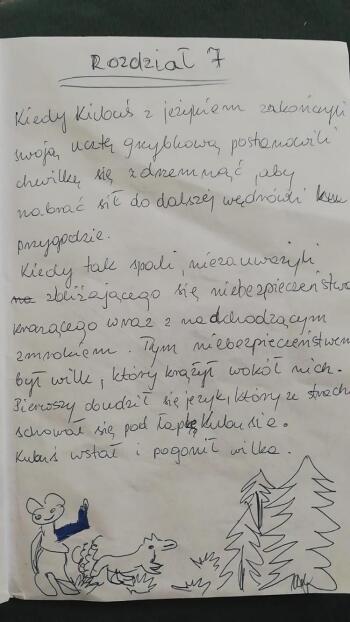 Rozdział 7
Kiedy Kubuś z jeżykiem zakończyli
swoją ucztę grzybkową postanowili
chwilkę się zdrzemnąć, aby
nabrać sił do dalszej wędrówki ku
przygodzie.
Kiedy tak spali, niezauważyli
zbliżającego się niebezpieczeństwa
krążącego wraz z nadchodzącym
zmrokiem. Tym niebezpieczeństwem
był wilk, który krążył wokół nich.
Pierwszy obudził się jeżyk, który ze strachu
schował się pod łapkę Kubusia.
Kubuś wstał i pogonił wilka.